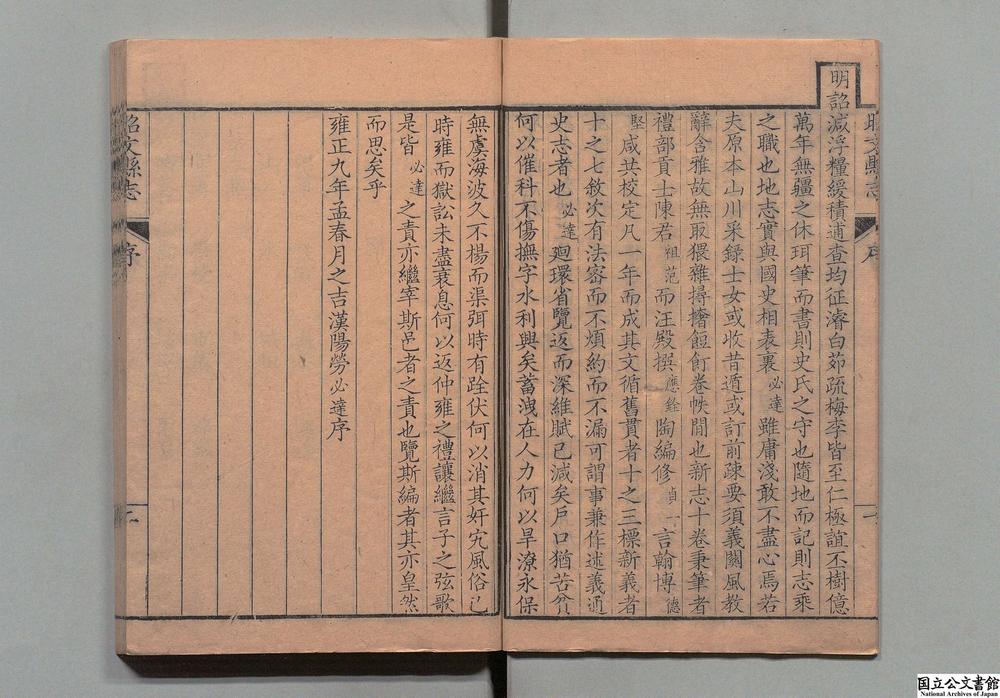 明詔減浮糧緩積逋查均征濬白茆疏梅李皆至仁極誼丕樹億
萬年無疆之休珥筆而書則史氏之守也隨地而記則志乘
之職也地志實與國史相表裏必達雖庸淺敢不盡心焉若
夫原本山川采録士女或收昔遁或訂前疎要須義關風教
辭含雅故無取猥雜撏撦餖飣卷帙間也新志十卷秉筆者
禮部貢士陳君祖范而汪殿撰應銓陶編修貞一言翰博德
堅咸共校定凡一年而成其文循舊貫者十之三標新義者
十之七敘次有法密而不煩約而不漏可謂事兼作述義通
史志者也必達廻環省覽返而深維賦已減矣戶口猶苦貧
何以催科不傷撫字水利興矣蓄洩在人力何以旱潦永保
無虞海波久不楊而渠弭時有跧伏何以消其奸宄風俗已
時雍而獄訟未盡衰息何以返仲雍之禮讓繼言子之弦歌
是皆必達之責亦繼宰斯邑者之責也覽斯編者其亦皇然
而思矣乎
雍正九年孟春月之吉漢陽勞必達序
昭文縣志
序
二
国立公文書館
National Archives of Japan